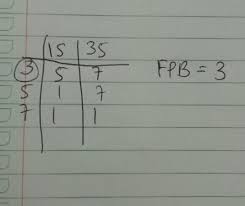 15 35
3 5 7
5 1 7
7 1 1
FPB = 3